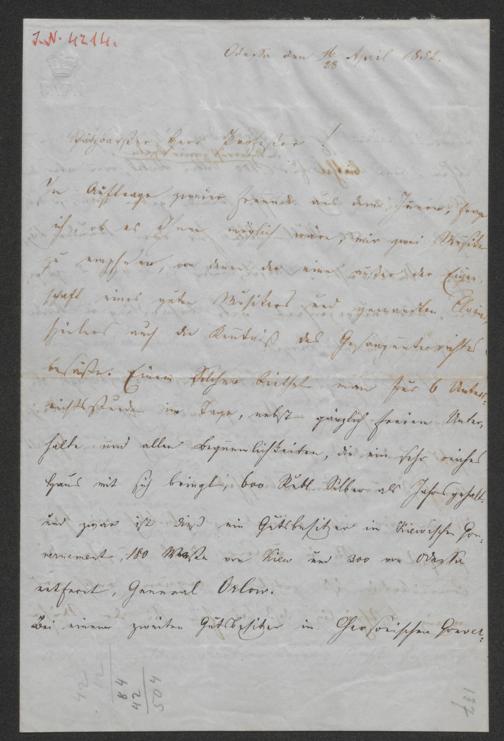 I.N. 4214.
Odessa den 16/28 April 1852.
Schätzbarster Herr Professor!
Im Auftrage zweier Freunde aus dem Innern, frage
ich ob es Ihnen möglich wäre, mir zwei Musiker
zu empfehlen, von denen der eine außer der Eigen-
schaft eines guten Musikers und gewandten Clavier
spielers auch die Kenntniß des Gesangunterrichtes
besäße. Einem Solchen bietet man für 6 Unter-
richtsstunden im Tage, nebst gänzlich freien Unter-
halte und allen Bequemlichkeiten, die ein sehr reiches
Haus mit sich bringt, 600 Rubl. Silber als Jahresgehalt
und zwar ist dieß ein Gutsbesitzer im Kiewischen Gou-
vernement, 180 Werste von Kiew und 300 von Odessa
entfernt, General Orlow.
Bei einem zweiten Gutsbesitzer im Chersonischen Gouver-
42
12
84
42
504